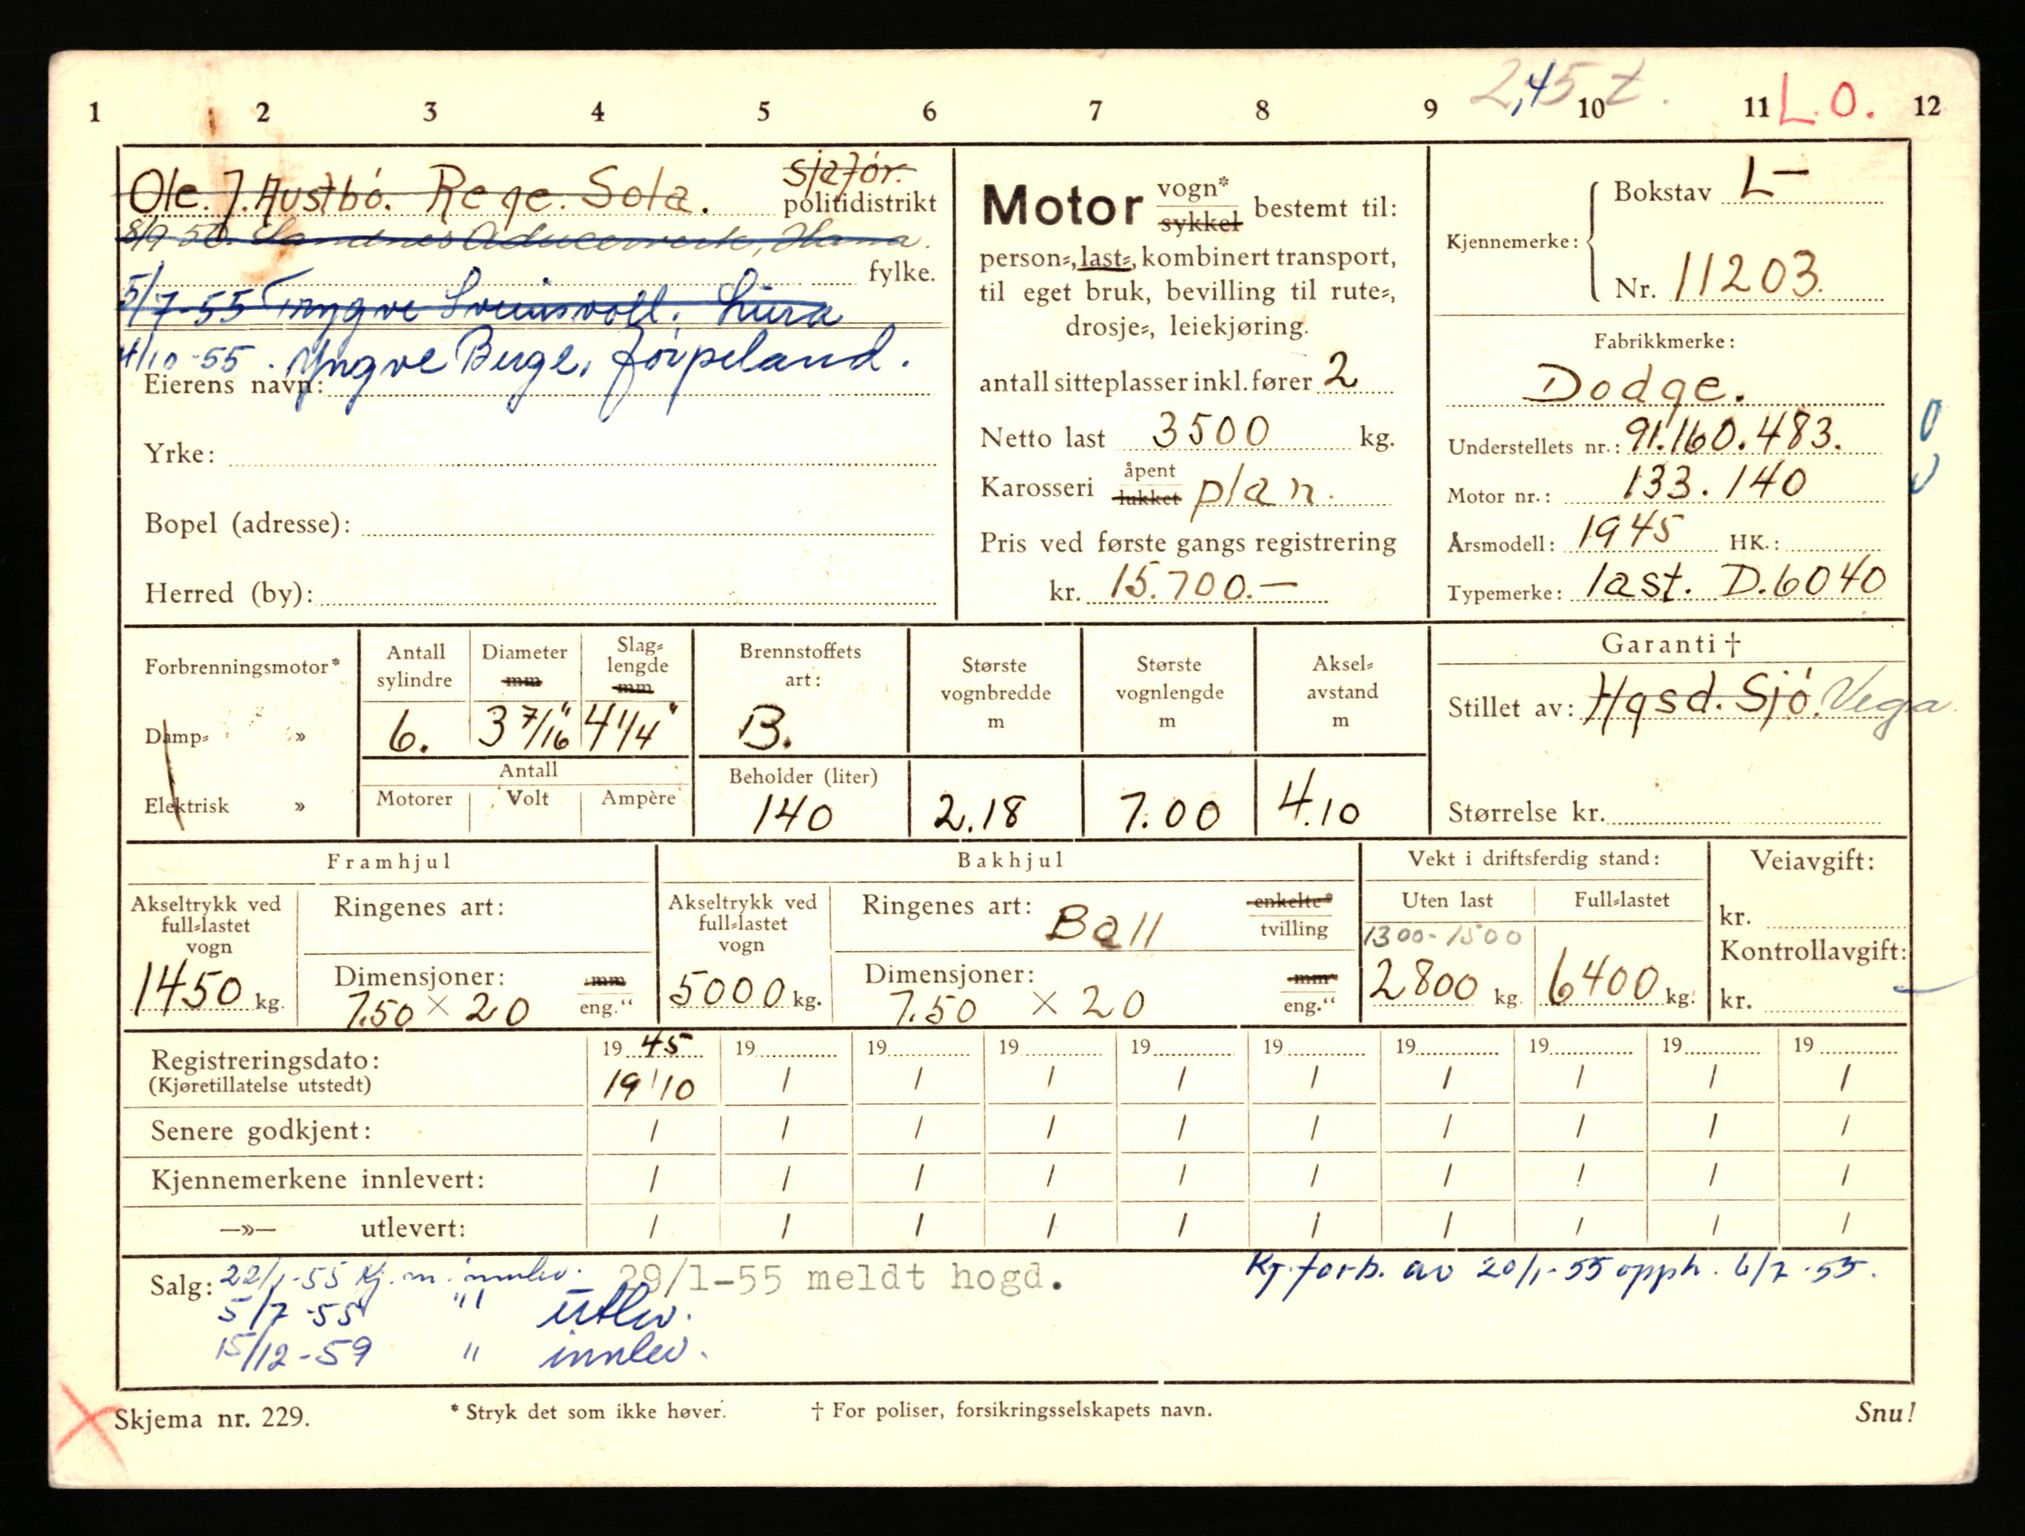 2,45 t.
1 2 3 4 5 6 7 8 9 10 11 L.O. 12
Ole. J. Austbö. Rege. Sola. sjaför.
politidistrikt
8/9-50. Sandnes Hana.
fylke.
5/7-55 Trygve Sveinsvoll. Lura
4/10-55. Yngve Berge, Jörpeland.
Eierens navn:
Yrke:
Bopel (adresse):
Herred (by):
Motor vogn* sykkel bestemt til:
person-, last-, kombinert transport,
til eget bruk, bevilling til rute-,
drosje-, leiekjøring.
antall sitteplasser inkl. fører 2
Netto last 3500 kg.
Karosseri åpent lukket plan.
Pris ved første gangs registrering
kr. 15.700.—
Bokstav L—
Kjennemerke:
Nr. 11203.
Fabrikkmerke:
Dodge.
Understellets nr.: 91.160.483.
Motor nr.: 133.140
Årsmodell: 1945 HK.:
Typemerke: last. D.6040
Forbrenningsmotor*
Damp- »
Elektrisk »
Antall sylindre
6.
Diameter mm
3 7/16"
Slag-lengde mm
4 1/4"
Antall
Motorer Volt Ampère
Brennstoffets art:
B.
Beholder (liter)
140
Største vognbredde m
2.18
Største vognlengde m
7.00
Aksel-avstand m
4.10
Garanti †
Stillet av: Hgsd. Sjö. Vega
Størrelse kr.
Framhjul
Akseltrykk ved
full-lastet
vogn
1450 kg.
Ringenes art:
Dimensjoner: mm
7.50 × 20 eng."
Bakhjul
Akseltrykk ved
full-lastet
vogn
5000 kg.
Ringenes art: Ball enkelte*
tvilling
Dimensjoner: mm
7.50 × 20 eng."
Vekt i driftsferdig stand:
Uten last Full-lastet
1300-1500
2800 kg. 6400 kg.
Veiavgift:
kr.
Kontrollavgift:
kr.
Registreringsdato: 19 45 19 19 19 19 19 19 19 19 19
(Kjøretillatelse utstedt) 19/10 / / / / / / / / /
Senere godkjent: / / / / / / / / / /
Kjennemerkene innlevert: / / / / / / / / / /
—»— utlevert: / / / / / / / / / /
Salg: 22/1-55 Kj.m. innlev. 29/1-55 meldt hogd. Kj.forb. av 20/1-55 opph. 6/7-55.
5/7-55 " utlev.
15/12-59 " innlev.
Skjema nr. 229. * Stryk det som ikke høver. † For poliser, forsikringsselskapets navn. Snu!